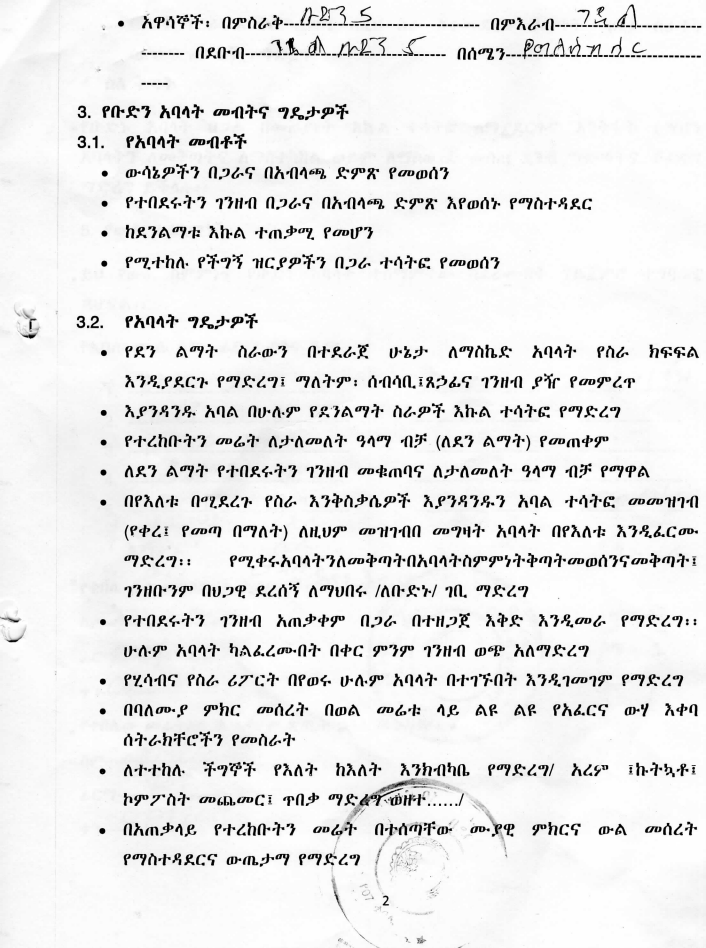 • አዋሳኞች፡ በምስራቅ-- በምእራብ--
-------- በደቡብ-- በሰሜን--
-----
3. የቡድን አባላት መብትና ግዴታዎች
3.1. የአባላት መብቶች
• ውሳኔዎችን በጋራና በአብላጫ ድምጽ የመወሰን
• የተበደሩትን ገንዘብ በጋራና በአብላጫ ድምጽ እየወሰኑ የማስተዳደር
• ከደንልማቱ እኩል ተጠቃሚ የመሆን
• የሚተከሉ የችግኝ ዝርያዎችን በጋራ ተሳትፎ የመወሰን
3.2. የአባላት ግዴታዎች
• የደን ልማት ስራውን በተደራጀ ሁኔታ ለማስኬድ አባላት የስራ ክፍፍል
እንዲያደርጉ የማድረግ፤ ማለትም፡ ሰብሳቢ፤ጸኃፊና ገንዘብ ያዥ የመምረጥ
• እያንዳንዱ አባል በሁሉም የደንልማት ስራዎች እኩል ተሳትፎ የማድረግ
• የተረከቡትን መሬት ለታለመለት ዓላማ ብቻ (ለደን ልማት) የመጠቀም
• ለደን ልማት የተበደሩትን ገንዘብ መቁጠባና ለታለመለት ዓላማ ብቻ የማዋል
• በየእለቱ በሚደረጉ የስራ እንቅስቃሴዎች እያንዳንዱን አባል ተሳትፎ መመዝገብ
(የቀረ፤ የመጣ በማለት) ለዚህም መዝገብበ መግዛት አባላት በየእለቱ እንዲፈርሙ
ማድረግ፡፡ የሚቀሩአባላትንለመቅጣትበአባላትስምምነትቅጣትመወሰንናመቅጣት፤
ገንዘቡንም በህጋዊ ደረሰኝ ለማህበሩ /ለቡድኑ/ ገቢ ማድረግ
• የተበደሩትን ገንዘብ አጠቃቀም በጋራ በተዘጋጀ እቅድ እንዲመራ የማድረግ፡፡
ሁሉም አባላት ካልፈረሙበት በቀር ምንም ገንዘብ ወጭ አለማድረግ
• የሂሳብና የስራ ሪፖርት በየወሩ ሁሉም አባላት በተገኙበት እንዲገመገም የማድረግ
• በባለሙያ ምክር መሰረት በወል መሬቱ ላይ ልዩ ልዩ የአፈርና ውሃ እቀባ
ሰትራክቸሮችን የመስራት
• ለተተከሉ ችግኞች የእለት ከእለት እንክብካቤ የማድረግ/ አረም ፤ኩትኳቶ፤
ኮምፖስት መጨመር፤ ጥበቃ ማድረግ ወዘተ....../
• በአጠቃላይ የተረከቡትን መሬት በተሰጣቸው ሙያዊ ምክርና ውል መሰረት
የማስተዳደርና ውጤታማ የማድረግ
2